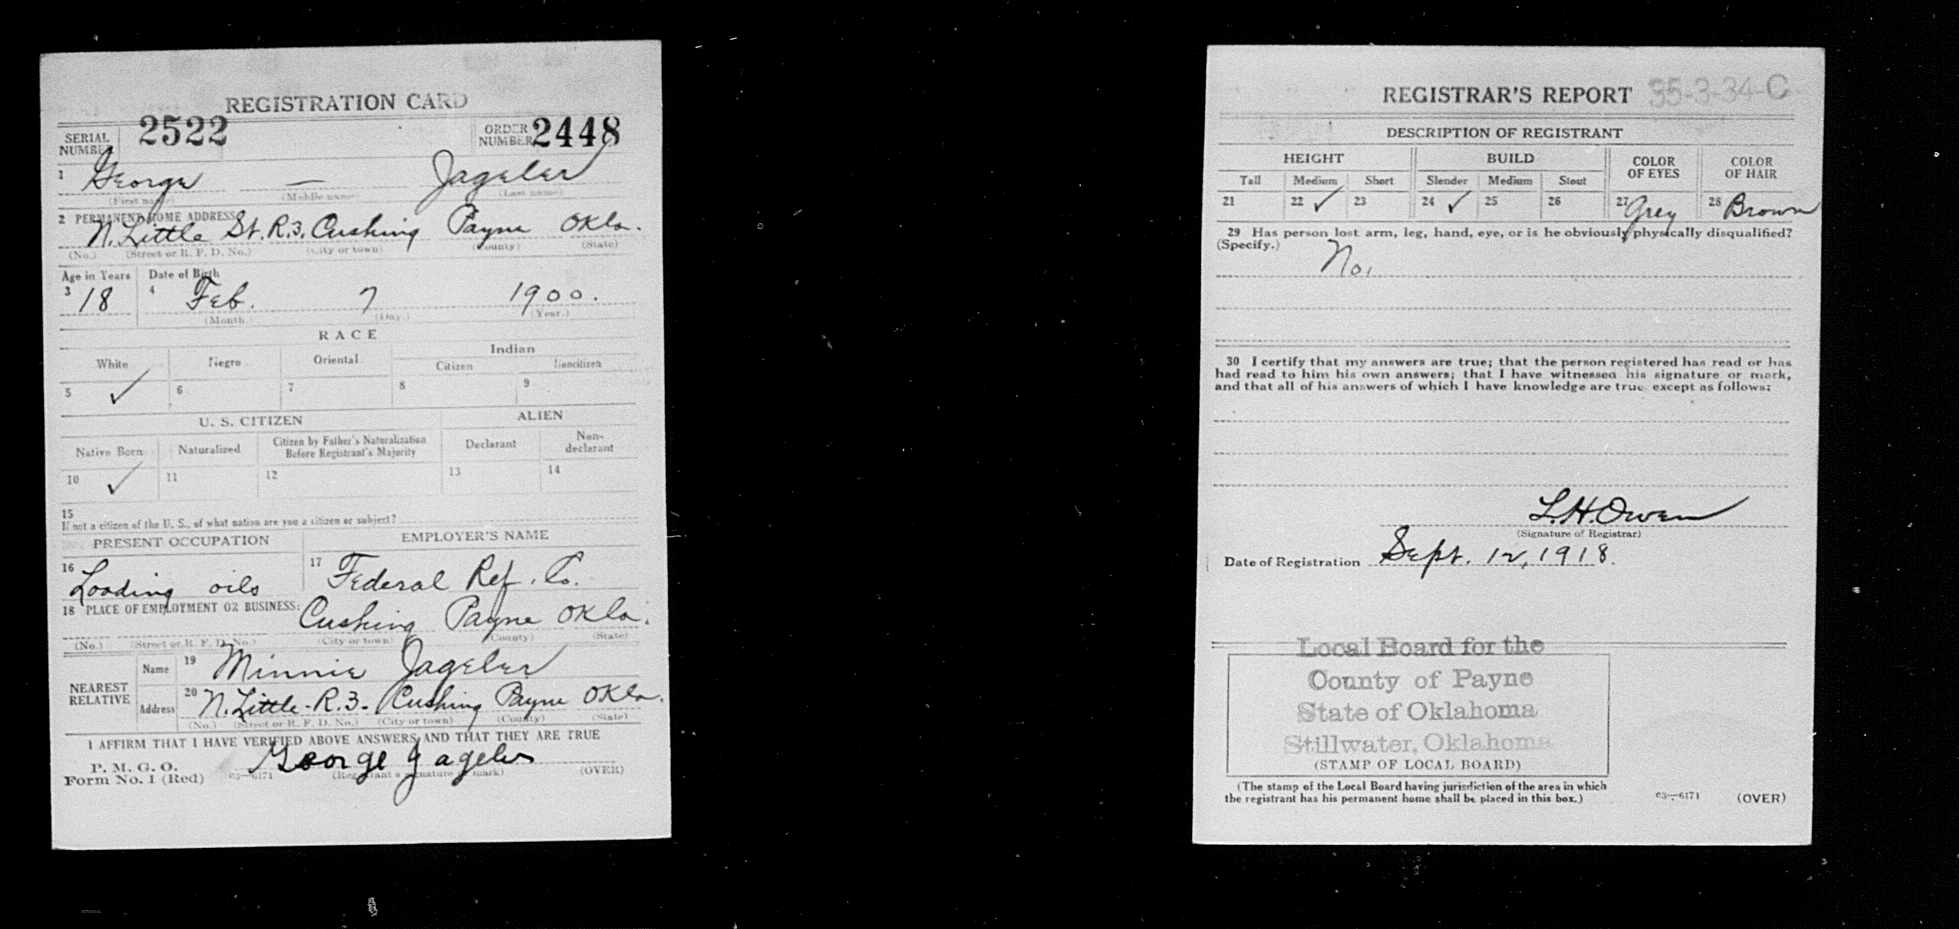 REGISTRATION CARD
SERIAL NUMBER 2522 ORDER NUMBER 2448
1 George — Jageler
(First name) (Middle name) (Last name)
2 PERMANENT HOME ADDRESS
N. Little St. R.3. Cushing Payne Okla.
(No.) (Street or R. F. D. No.) (City or town) (County) (State)
Age in Years Date of Birth
3 18 4 Feb. 7 1900.
(Month.) (Day.) (Year.)
RACE
White Negro Oriental Indian
Citizen Noncitizen
5 ✓ 6 7 8 9
U. S. CITIZEN ALIEN
Native Born Naturalized Citizen by Father's Naturalization Before Registrant's Majority Declarant Non-declarant
10 ✓ 11 12 13 14
15
If not a citizen of the U. S., of what nation are you a citizen or subject?
PRESENT OCCUPATION EMPLOYER'S NAME
16 Loading oils 17 Federal Ref. Co.
18 PLACE OF EMPLOYMENT OR BUSINESS:
Cushing Payne Okla.
(No.) (Street or R. F. D. No.) (City or town) (County) (State)
NEAREST RELATIVE
Name 19 Minnie Jageler
Address 20 N. Little - R.3 - Cushing Payne Okla.
(No.) (Street or R. F. D. No.) (City or town) (County) (State)
I AFFIRM THAT I HAVE VERIFIED ABOVE ANSWERS AND THAT THEY ARE TRUE
P. M. G. O.
Form No. 1 (Red) 03—6171 George Jageler
(Registrant's signature or mark) (OVER)
REGISTRAR'S REPORT 35-3-34-C
DESCRIPTION OF REGISTRANT
HEIGHT BUILD COLOR OF EYES COLOR OF HAIR
Tall Medium Short Slender Medium Stout
21 22 ✓ 23 24 ✓ 25 26 27 Grey 28 Brown
29 Has person lost arm, leg, hand, eye, or is he obviously physically disqualified?
(Specify.) No.
30 I certify that my answers are true; that the person registered has read or has
had read to him his own answers; that I have witnessed his signature or mark,
and that all of his answers of which I have knowledge are true, except as follows:
L. H. Owen
(Signature of Registrar)
Date of Registration Sept. 12, 1918.
Local Board for the
County of Payne
State of Oklahoma
Stillwater, Oklahoma
(STAMP OF LOCAL BOARD)
(The stamp of the Local Board having jurisdiction of the area in which
the registrant has his permanent home shall be placed in this box.)
03—6171 (OVER)